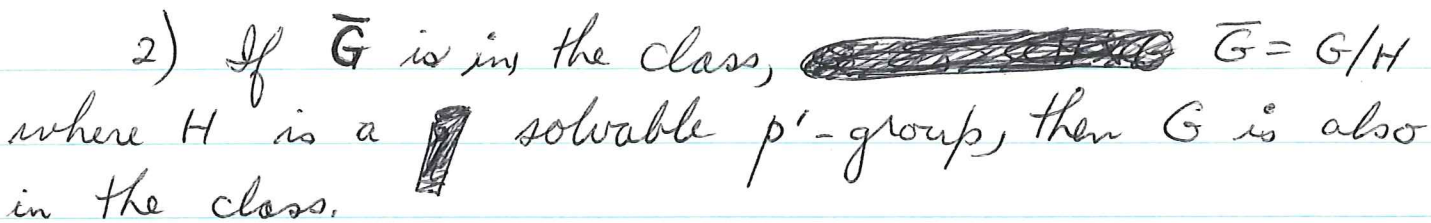 2) If G̅ is in the class, G̅ = G/H
where H is a solvable p'-group, then G is also
in the class.